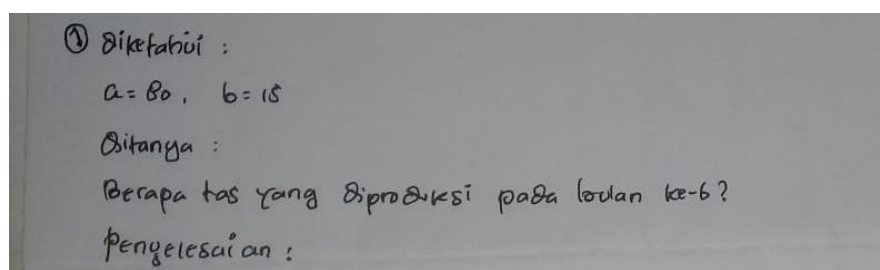 ① Diketahui :
a = 80, b = 15
Ditanya :
Berapa tas yang diproduksi pada bulan ke-6?
Penyelesaian :